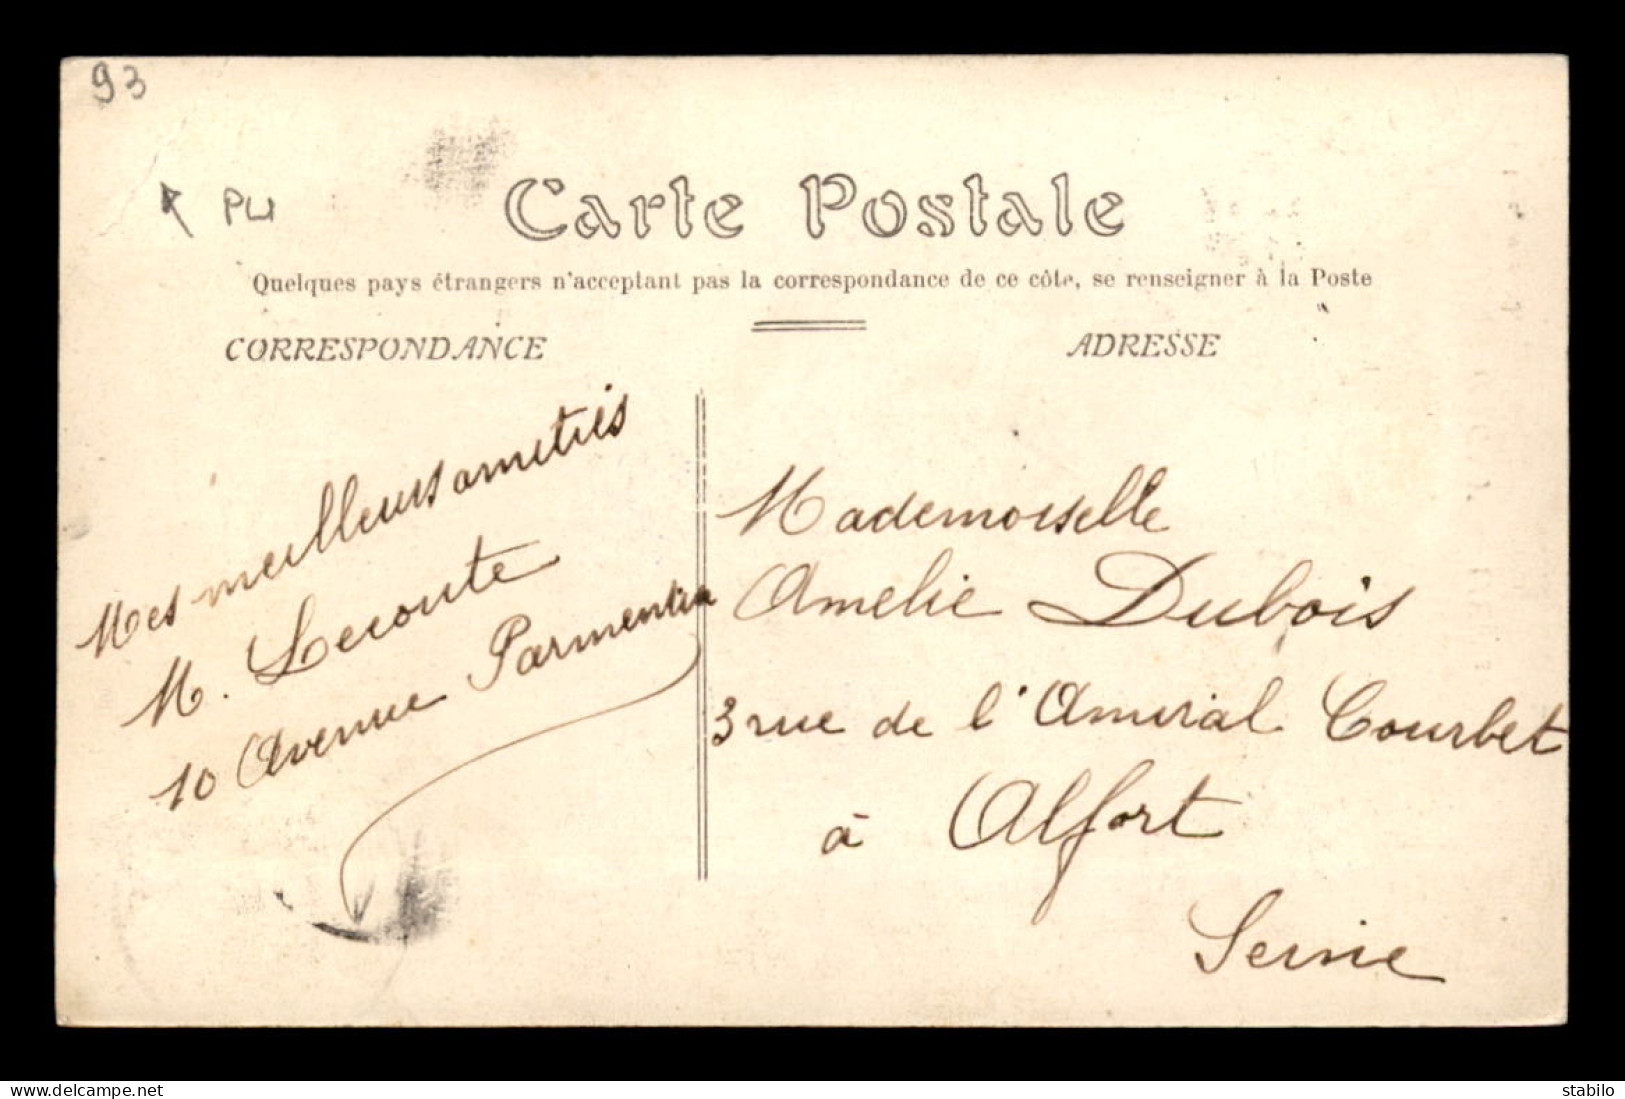 93
PU
Carte Postale
Quelques pays étrangers n'acceptant pas la correspondance de ce côté, se renseigner à la Poste
CORRESPONDANCE
ADRESSE
Mes meilleurs amitiés
M. Lecoute
10 Avenue Parmentier
Mademoiselle
Amelie Dubois
3 rue de l'Amiral Courbet
à Alfort
Seine
www.delcampe.net
stabilo